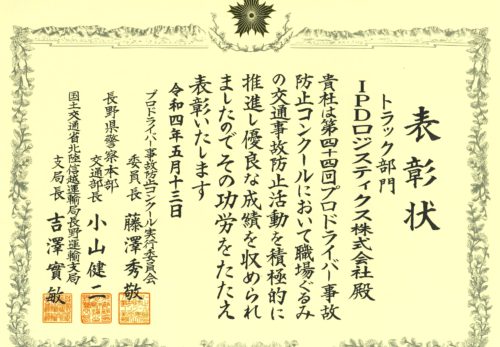 表彰状
トラック部門
IPDロジスティクス株式会社 殿
貴社は第四十四回プロドライバー事故
防止コンクールにおいて職場ぐるみ
の交通事故防止活動を積極的に
推進し優良な成績を収められ
ましたのでその功労をたたえ
表彰いたします
令和四年五月十三日
プロドライバー事故防止コンクール実行委員会
委員長 藤澤秀敬
長野県警察本部
交通部長 小山健二
国土交通省北陸信越運輸局長野運輸支局
支局長 吉澤實敏